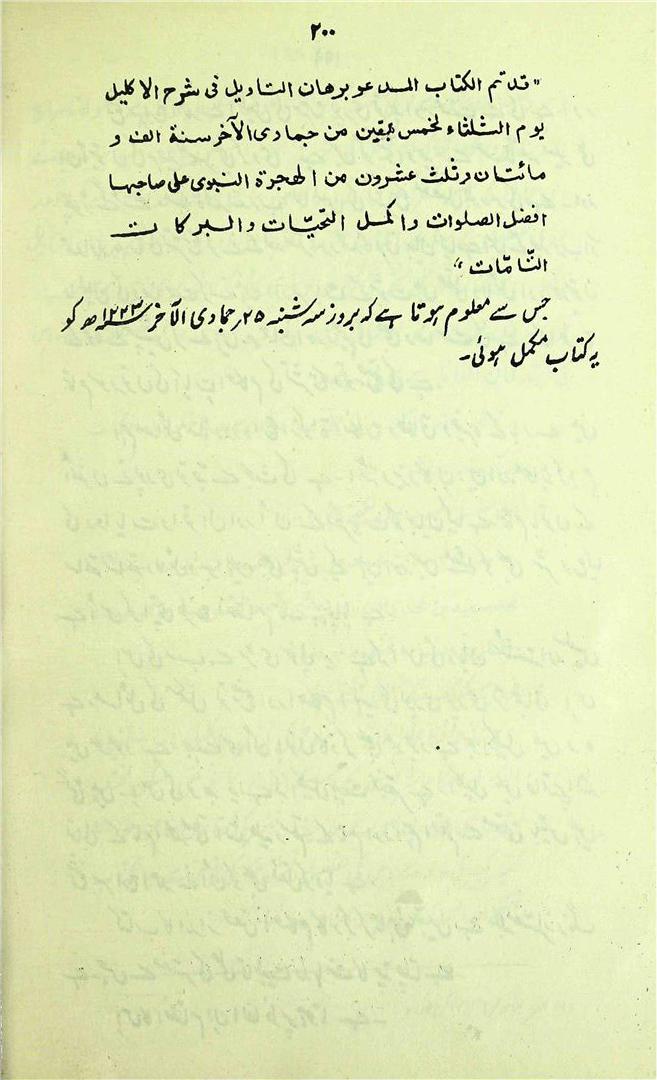 ۲۰۰
"قد تم الكتاب المدعو برهان التاويل فى شرح الاكليل
يوم الثلثاء لخمس بقين من جمادى الآخر سنة الف و
مائتان وثلث عشرون من الهجرة النبوى على صاحبها
افضل الصلوات واكمل التحيّات والبركات
التّامّات"
جس سے معلوم ہوتا ہے کہ بروز سہ شنبہ ۲۵؍ جمادی الآخر ۱۲۲۳ھ کو
یہ کتاب مکمل ہوئی۔